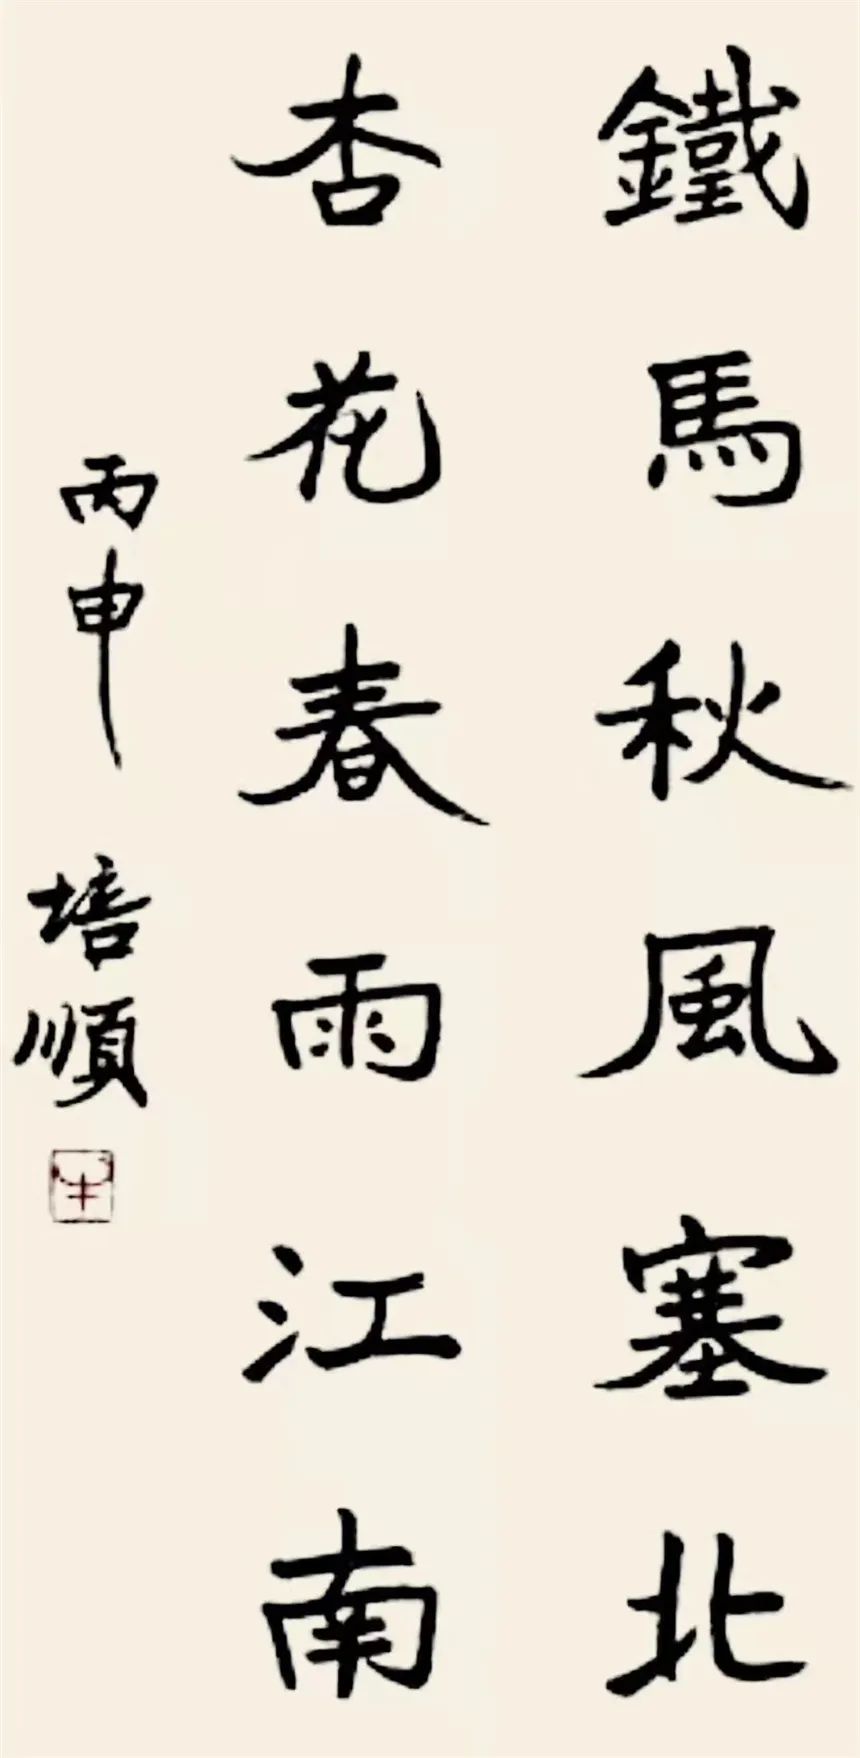 鐵馬秋風塞北
杏花春雨江南
丙申 培順